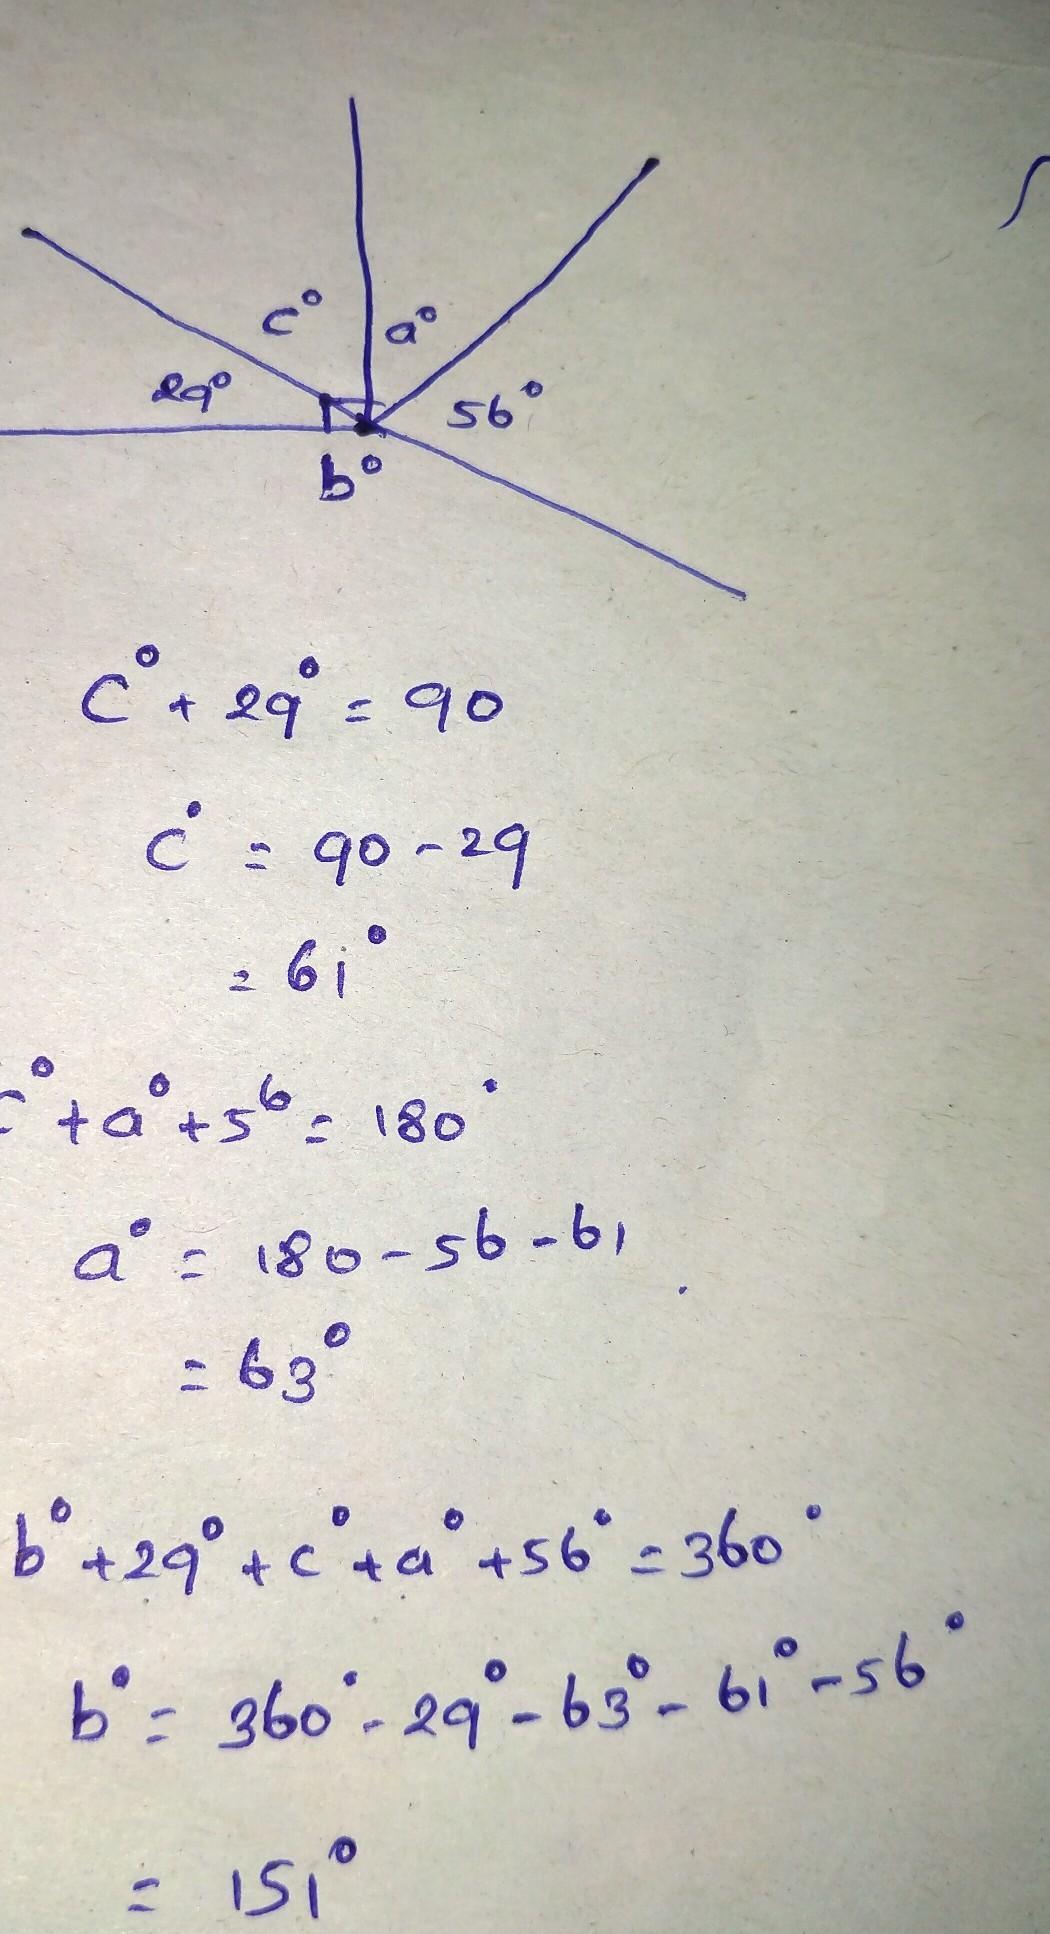 c° a°
29° 56°
b°
c° + 29° = 90
c° = 90 - 29
= 61°
c° + a° + 56 = 180°
a° = 180 - 56 - 61
= 63°
b° + 29° + c° + a° + 56° = 360°
b° = 360° - 29° - 63° - 61° - 56°
= 151°